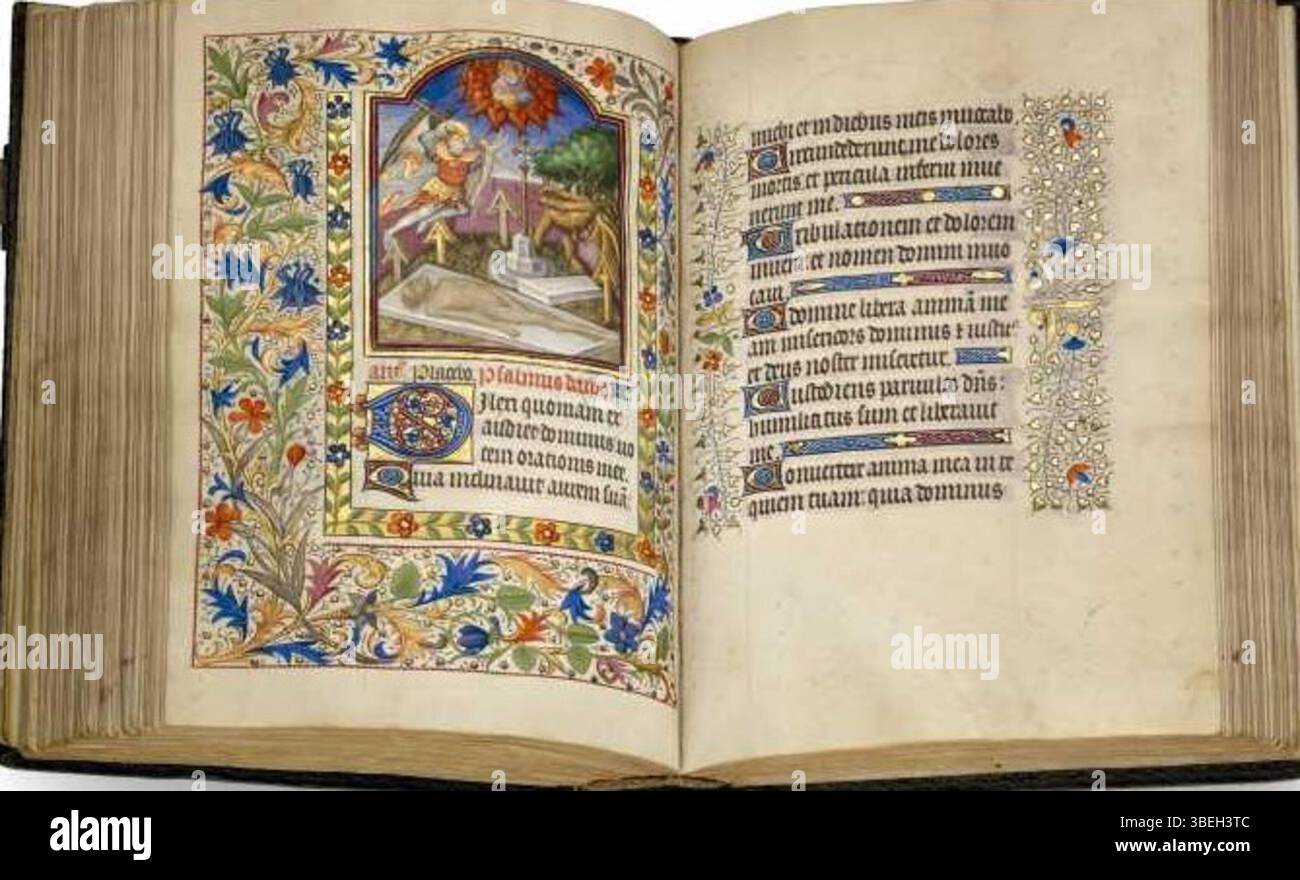 añ Placebo Psalmus david
Dilexi quoniam ex
audiet dominus uo
cem orationis mee.
Quia inclinauit aurem suā
michi et in diebus meis inuocabo
Circundederunt me dolores
mortis et pericula inferni inue
nerunt me.
Tribulationem et dolorem
inueni: et nomen domini inuo
caui
O domine libera animā me
am misericors dominus et iustus
et deus noster miseretur.
Custodiens paruulos dn̄s:
humiliatus sum et liberauit
me
Conuertere anima mea in re
quiem tuam: quia dominus
alamy
alamy
Image ID: 3BEH3TC
www.alamy.com